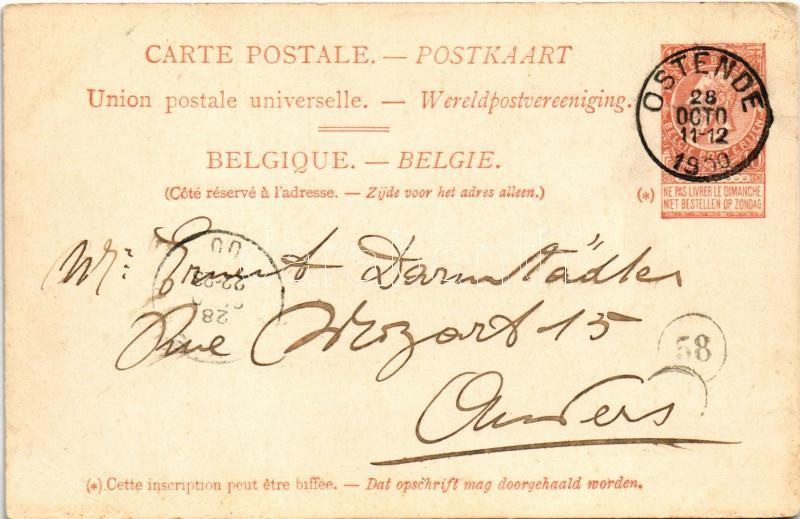 CARTE POSTALE. — POSTKAART
Union postale universelle. — Wereldpostvereeniging.
BELGIQUE. — BELGIE.
(Côté réservé à l'adresse. — Zijde voor het adres alleen.)
(*)
OSTENDE
28
OCTO
11-12
1900
BELGIE POSTERIJEN
NE PAS LIVRER LE DIMANCHE
NIET BESTELLEN OP ZONDAG
Mr. Ernest Darmstädter
Rue Mozart 15
Anvers
00
22-23
28
58
(*) Cette inscription peut être biffée. — Dat opschrift mag doorgehaald worden.